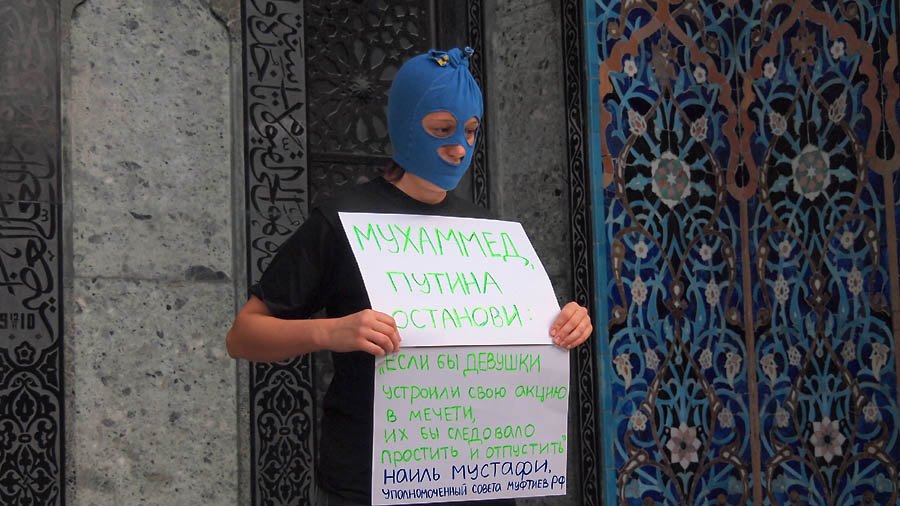 МУХАММЕД,
ПУТИНА
ОСТАНОВИ:
„ЕСЛИ БЫ ДЕВУШКИ
УСТРОИЛИ СВОЮ АКЦИЮ
В МЕЧЕТИ,
ИХ БЫ СЛЕДОВАЛО
ПРОСТИТЬ И ОТПУСТИТЬ"
НАИЛЬ МУСТАФИ,
УПОЛНОМОЧЕННЫЙ СОВЕТА МУФТИЕВ РФ